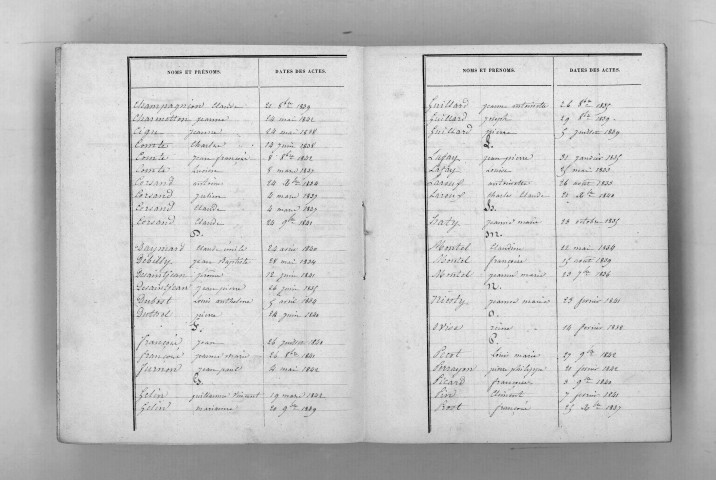 NOMS ET PRÉNOMS. DATES DES ACTES.
Champagnion Claude 21 8bre 1839
Charmetton jeanne 24 mai 1842
Cigu jeanne 24 mai 1838
Comte Charles 14 juin 1838
Comte jean françois 8 8bre 1842
Comte Lucien 8 mars 1837
Corsand antoine 24 Xbre 1834
Corsand 4 mars 1837
Corsand Claude 4 mars 1837
Corsand Claude 24 9bre 1841
D.
Claude 24 août 1840
Debilly jean Baptiste 28 mai 1834
Desaintjean pierre 12 juin 1841
Desaintjean jean pierre 26 juin 1835
Dubost Louis anthelme 5 avril 1834
Duthel pierre 24 juin 1840
F.
François jean 26
François jeanne marie 26 8bre 1841
Furnon jean paul 4 mai 1842
G.
Gelin guillaume Vincent 19 mars 1842
Gelin marianne 20 9bre 1839
NOMS ET PRÉNOMS. DATES DES ACTES.
Guillard jeanne antoinette 26 8bre 1835
Guillard joseph 29 8bre 1839
Guillard pierre 5 1839
L.
Lafay jean pierre 31 janvier 1835
Lafay 25 mai 1833
Laroux antoinette 26 août 1833
Laroux Charles Claude 20 Xbre 1840
jeanne marie 28 octobre 1835
M.
Montel Claudine 22 mai 1834
Montel françois 15 août 1839
Montel jeanne marie 20 7bre 1836
N.
jeanne marie 23 fevrier 1841
O.
14 fevrier 1838
P.
Perot Louis marie 27 9bre 1842
Perrayon pierre philippe 20 1842
Picard françoise 8 9bre 1840
Clement 7 fevrier 1841
Prost françois 25 Xbre 1837